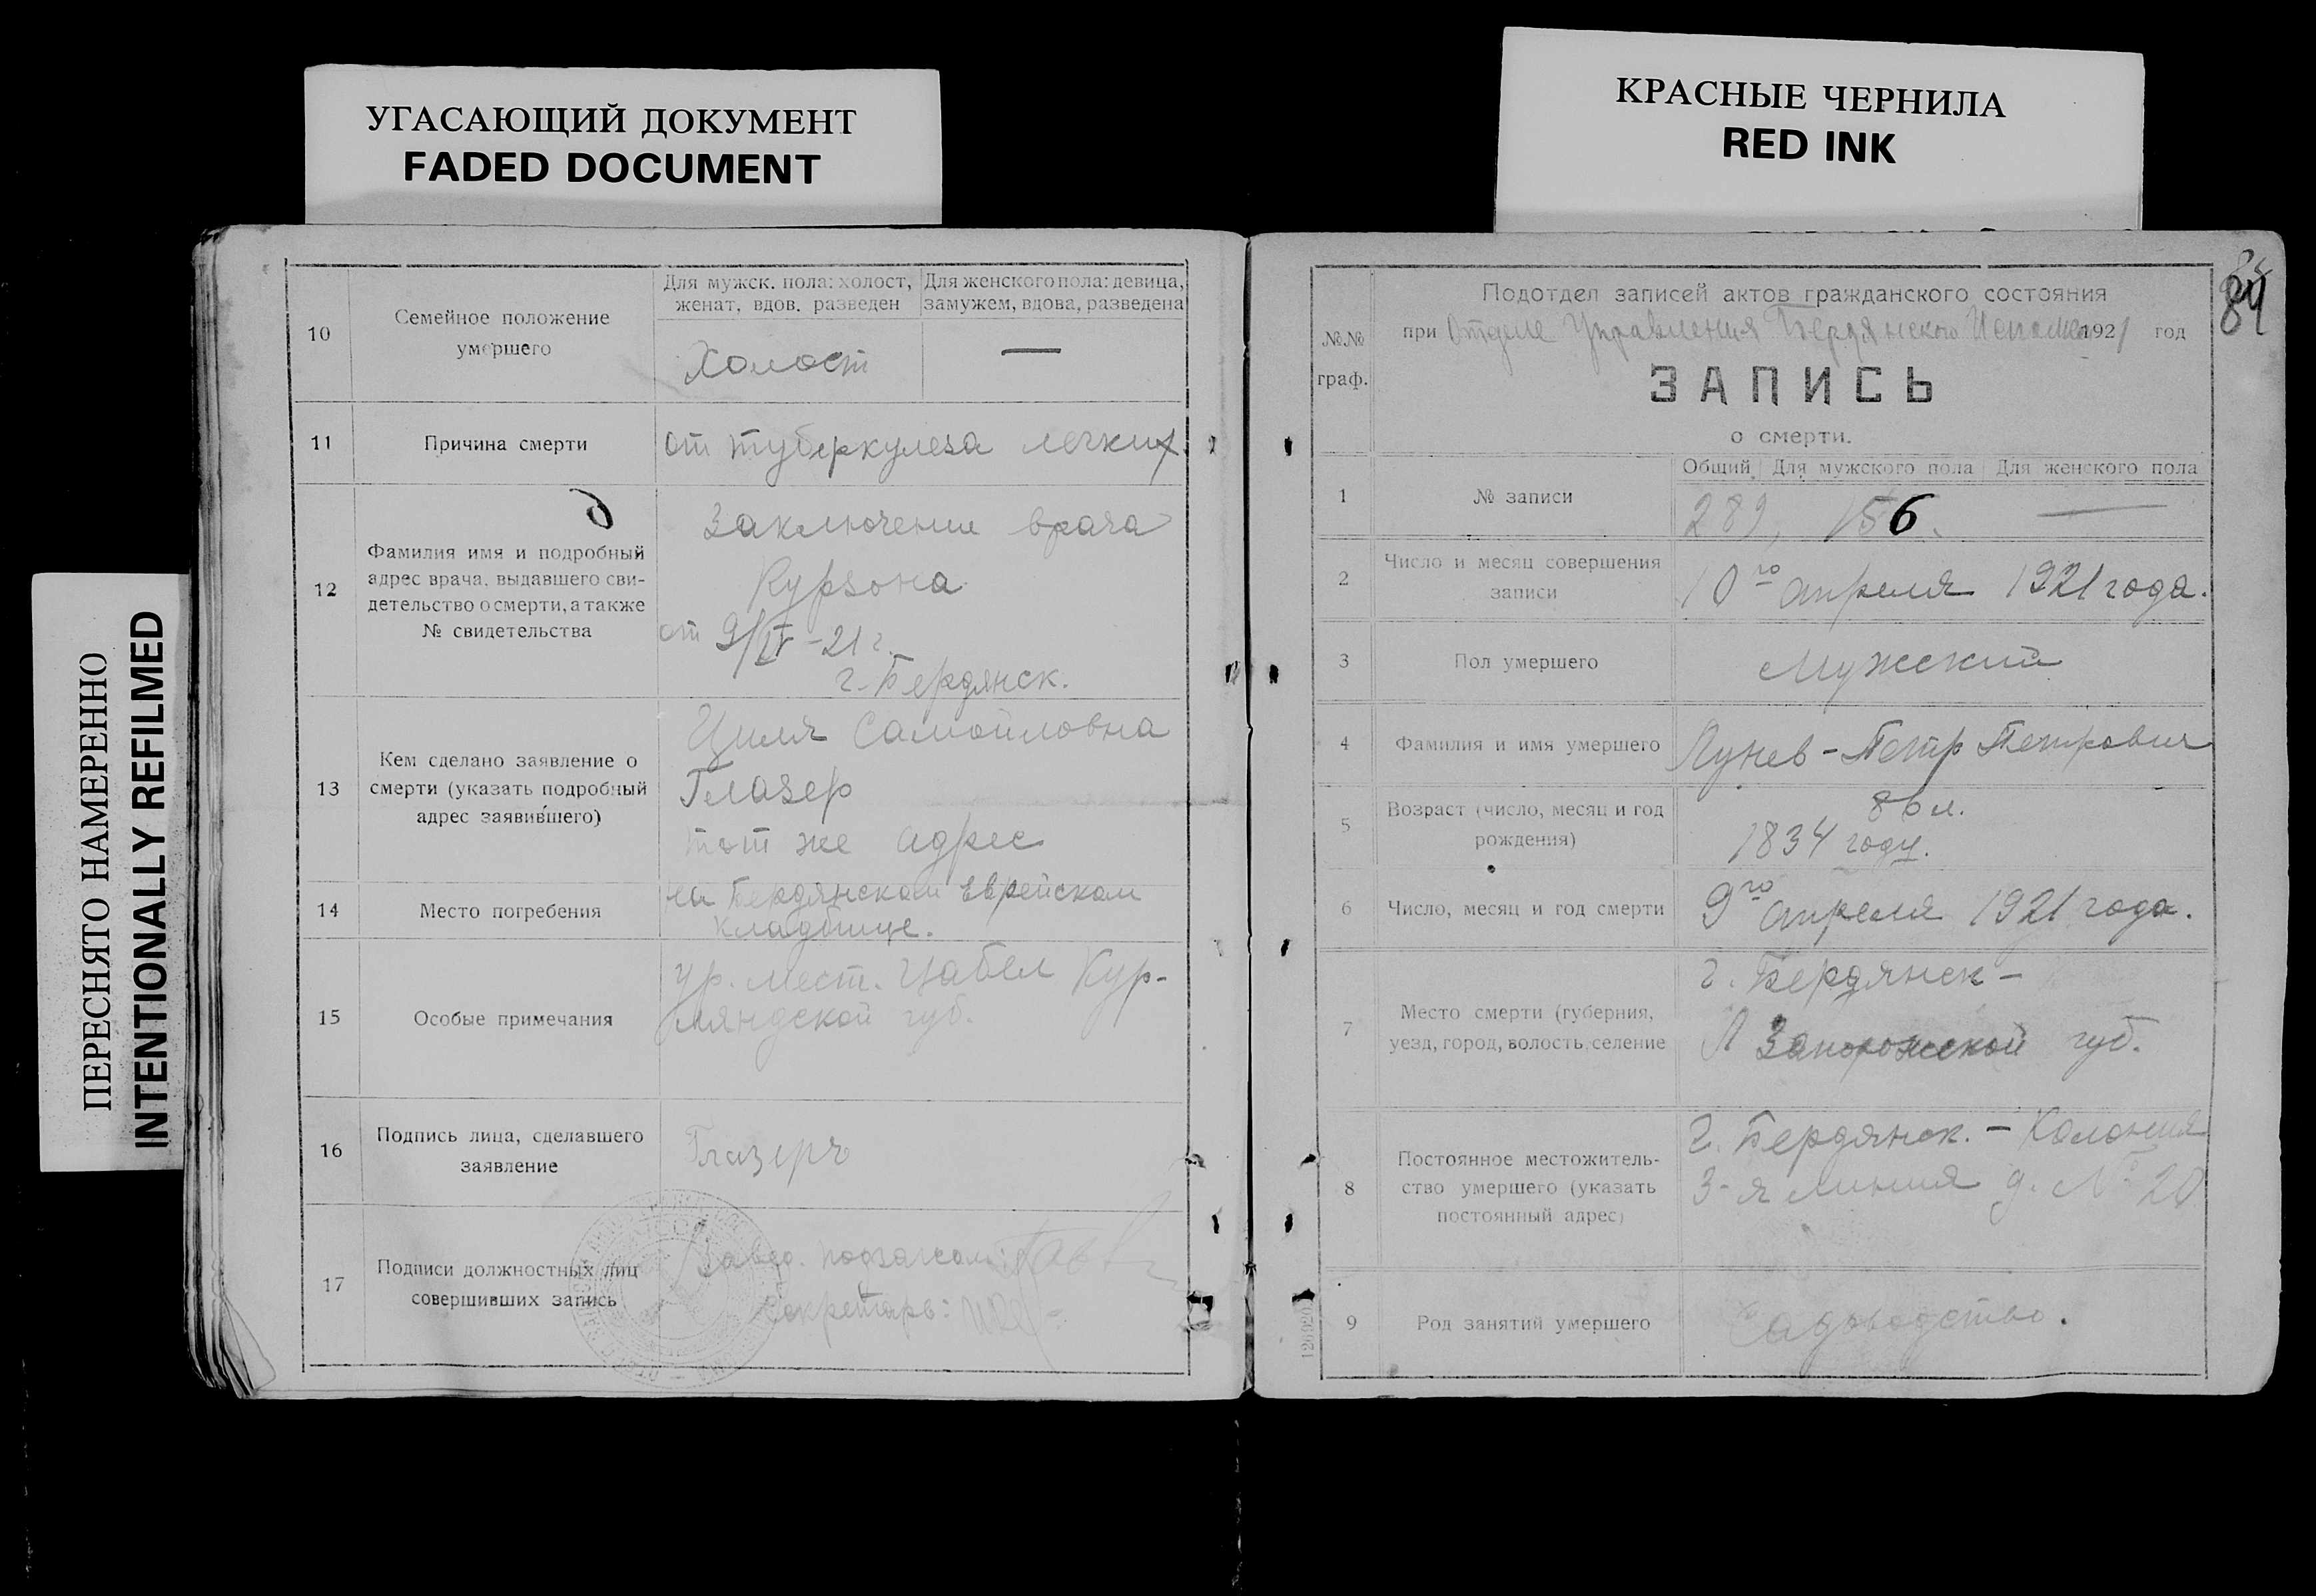 УГАСАЮЩИЙ ДОКУМЕНТ
FADED DOCUMENT
КРАСНЫЕ ЧЕРНИЛА
RED INK
ПЕРЕСНЯТО НАМЕРЕННО
INTENTIONALLY REFILMED
10
Семейное положение
умершего
Для мужск. пола: холост,
женат, вдов, разведен
Для женского пола: девица,
замужем, вдова, разведена
Холост
—
11
Причина смерти
от туберкулеза легких.
12
Фамилия имя и подробный
адрес врача, выдавшего сви-
детельство о смерти, а также
№ свидетельства
Заключение врача
Курзона
от 9/IV-21 г.
г. Бердянск.
13
Кем сделано заявление о
смерти (указать подробный
адрес заявившего)
Циля Самойловна
Глазер
тот же адрес
14
Место погребения
на Бердянском Еврейском
кладбище.
15
Особые примечания
ур. мест. Цабел Кур-
ляндской губ.
16
Подпись лица, сделавшего
заявление
Глазеръ
17
Подписи должностных лиц
совершивших запись
Завед. подзагсом:
Секретарь:
84
№№
граф.
Подотдел записей актов гражданского состояния
при Отделе Управления Бердянского Исполкома 1921 год
ЗАПИСЬ
о смерти.
1
№ записи
Общий
Для мужского пола
Для женского пола
289,
156.
—
2
Число и месяц совершения
записи
10го апреля 1921 года.
3
Пол умершего
Мужский
4
Фамилия и имя умершего
Лунев - Петр Петрович
5
Возраст (число, месяц и год
рождения)
86 л.
1834 году.
6
Число, месяц и год смерти
9го апреля 1921 года.
7
Место смерти (губерния,
уезд, город, волость, селение
г. Бердянск -
Запорожской губ.
8
Постоянное местожитель-
ство умершего (указать
постоянный адрес)
г. Бердянск. - Колония
3-я линия д. № 20
9
Род занятий умершего
Садоводство.